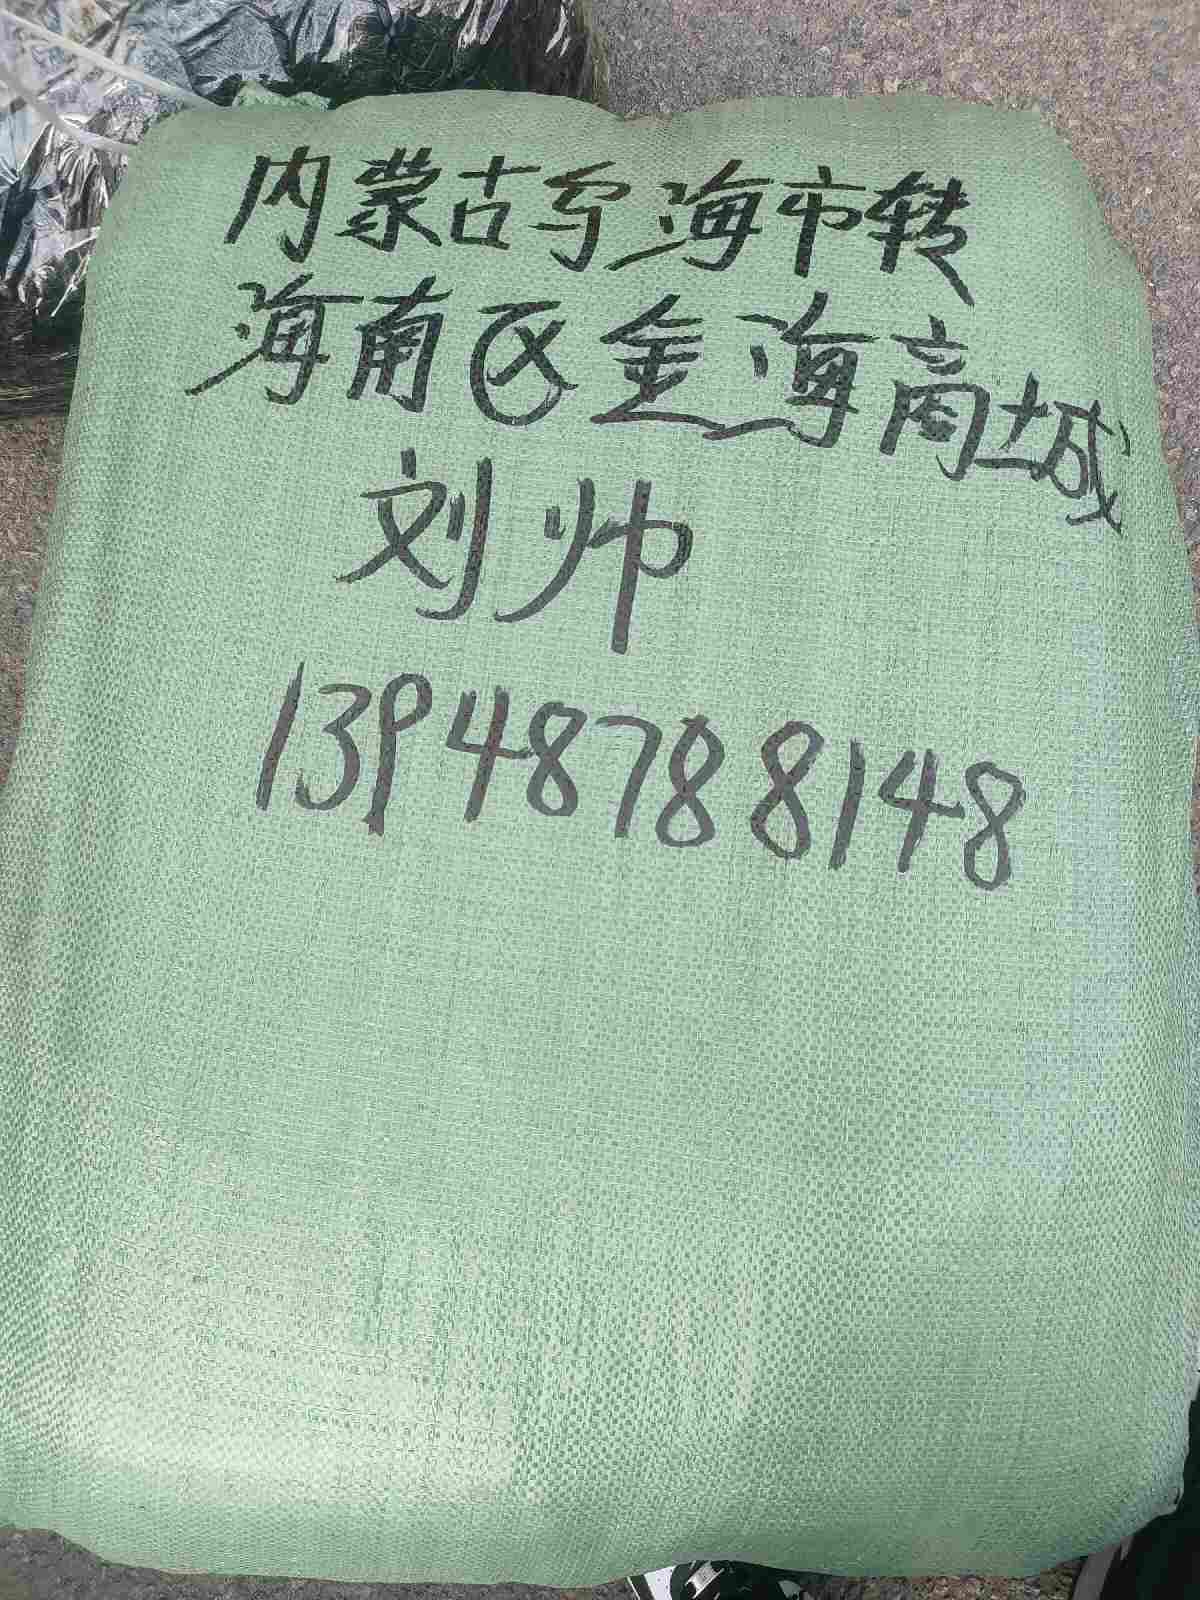 内蒙古乌海市转
海南区金海商城
刘帅
13948788148